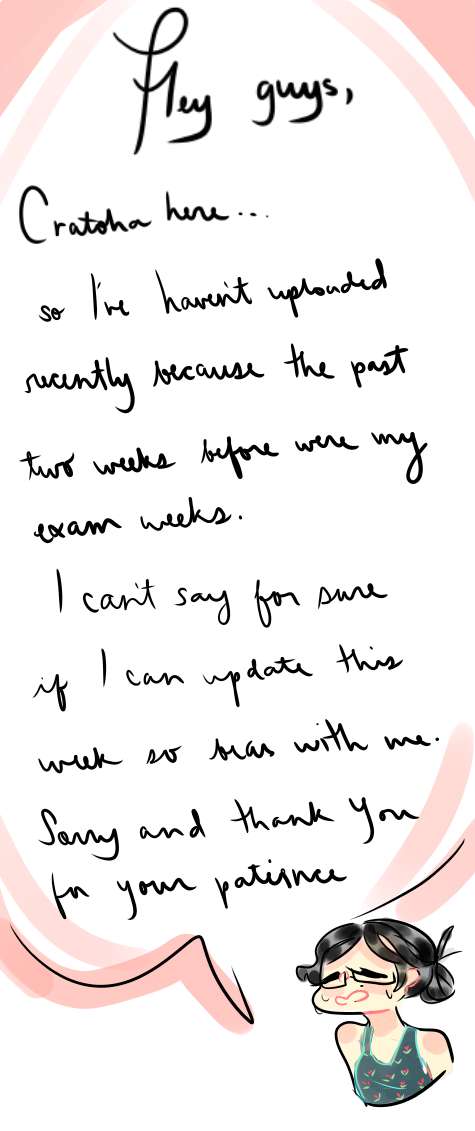 Hey guys,
Cratoha here...
so I've haven't uploaded
recently because the past
two weeks before were my
exam weeks.
I can't say for sure
if I can update this
week so bear with me.
Sorry and thank you
for your patience